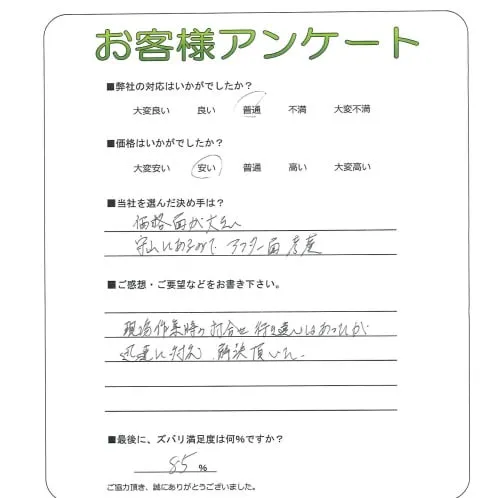 お客様アンケート
■弊社の対応はいかがでしたか?
大変良い 良い 普通 不満 大変不満
■価格はいかがでしたか?
大変安い 安い 普通 高い 大変高い
■当社を選んだ決め手は?
価格面が大きい
守山にあるので アフター面考慮
■ご感想・ご要望などをお書き下さい。
現場作業時の打合せ行き違いはあったが
迅速に対応、解決頂いた。
■最後に、ズバリ満足度は何%ですか?
85 %
ご協力頂き、誠にありがとうございました。